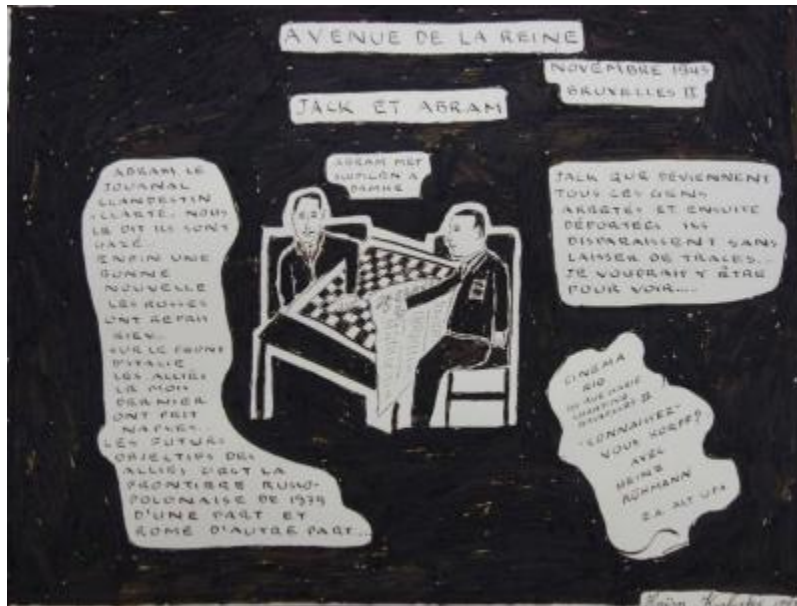 AVENUE DE LA REINE
NOVEMBRE 1943
BRUXELLES II
JACK ET ABRAM
ABRAM MET
A
ABRAM, LE
JOURNAL
CLANDESTIN
NOUS
LE DIT ILS SONT
GAZÉ
ENFIN UNE
BONNE
NOUVELLE
LES RUSSES
ONT REPRIS
KIEV..
SUR LE FRONT
D'ITALIE
LES ALLIÉS
LE MOIS
DERNIER
ONT PRIT
NAPLES.
LES FUTURS
OBJECTIFS DES
ALLIÉS C'EST LA
FRONTIÈRE RUSSO-
POLONAISE DE 1939
D'UNE PART ET
ROME D'AUTRE PART...
JACK QUE DEVIENNENT
TOUS LES GENS
ARRÊTÉS ET ENSUITE
DÉPORTÉES ILS
DISPARAISSENT SANS
LAISSER DE TRACES...
JE VOUDRAIS Y ÊTRE
POUR VOIR....
CINEMA
RIO
RUE MARIE
BRUXELLES II
"CONNAISSEZ-
VOUS KORFF?
AVEC
HEINZ
RÜHMANN